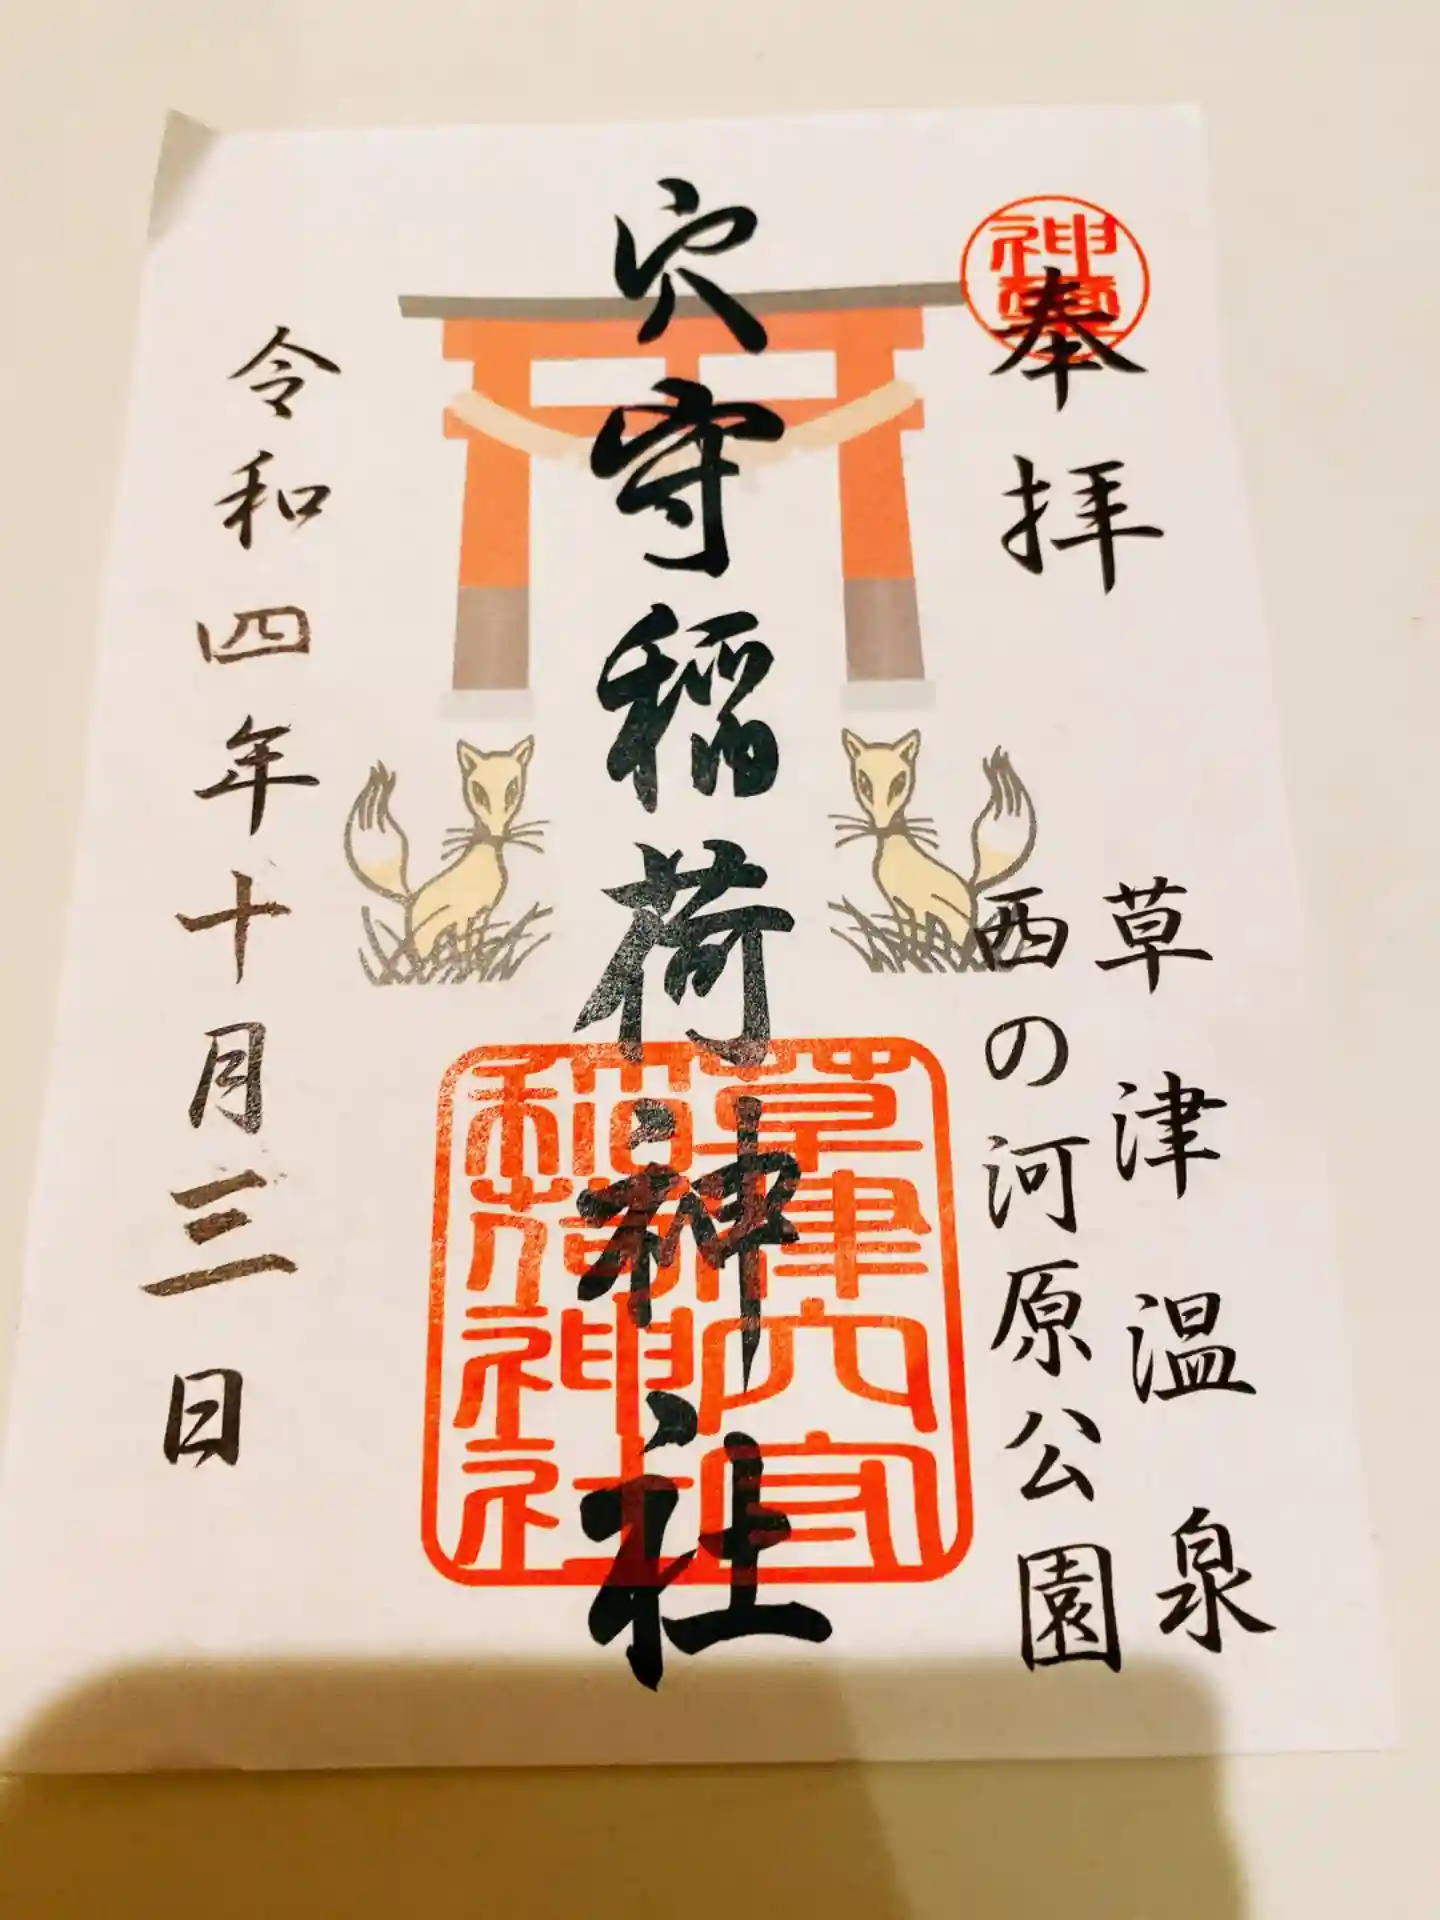 奉拝
草津温泉
西の河原公園
穴守稲荷神社
草津穴守
稲荷神社
令和四年十月三日